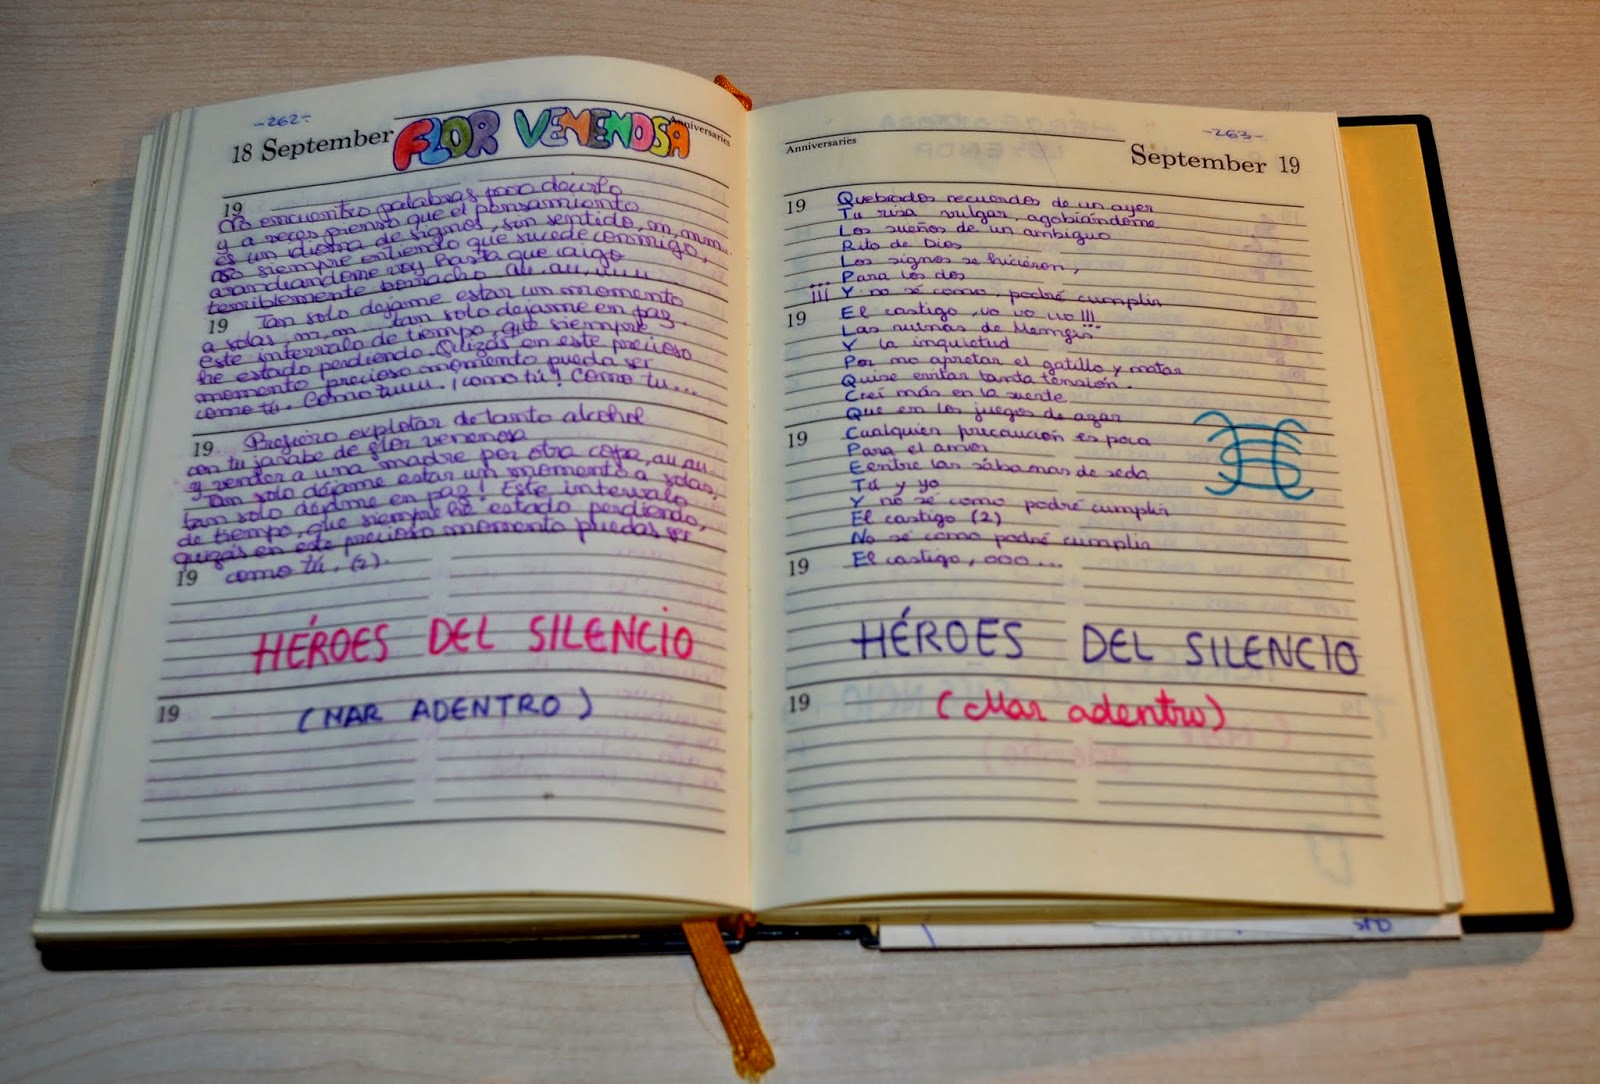 -262-
18 September
FLOR VENENOSA
Anniversaries
19
No encuentro palabras para decirlo
y a veces pienso que el pensamiento
es un idioma de signos, sin sentido, m, mm
no siempre entiendo que sucede conmigo,
arandiandome voy hasta que caigo
terriblemente borracho au, au, uuuu
19 Tan solo dejame estar un momento
a solas, m, m... tan solo dejarme en paz.
este intervalo de tiempo, que siempre
he estado perdiendo. Quizás en este precioso
momento precioso momento pueda ser
como tú. Como tuuuu. ¡como tú! Como tu...
19 Prefiero explotar de tanto alcohol
con tu jarabe de flor venenosa
y vender a una madre por otra copa, au, au
Tan solo déjame estar un momento a solas,
tan solo déjame en paz! Este intervalo
de tiempo, que siempre he estado perdiendo,
quizás en este precioso momento puedas ser
19 como tú. (2).
HÉROES DEL SILENCIO
19 (MAR ADENTRO)
-263-
Anniversaries
September 19
19 Quebrados recuerdos de un ayer
Tu risa vulgar, agobiándome
Los sueños de un ambiguo
Rito de Dios
Los signos se hicieron,
Para los dos
¡¡¡ Y no sé como, podré cumplir
19 El castigo, uo uo uo !!!
Las ruinas de Memfis
Y la inquietud
Por no apretar el gatillo y matar
Quise evitar tanta tensión.
Creí más en la suerte
Que en los juegos de azar
19 Cualquier precaución es poca
Para el amor
Eentre las sábamas de seda
Tú y yo
Y no sé como podré cumplir
El castigo (2)
No sé como podré cumplir
19 El castigo, ooo...
HÉROES DEL SILENCIO
19 (Mar adentro)